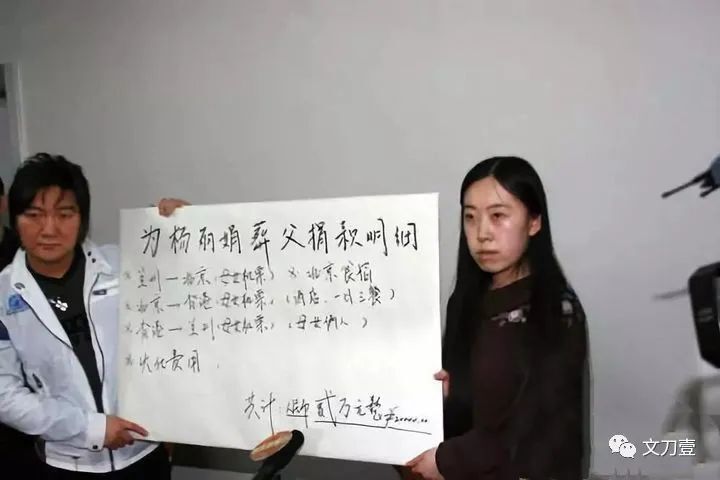 为杨丽娟葬父捐款明细
※ 兰州—北京(母女机票) ※ 北京食宿
※ 北京—香港(母女机票)(酒店、一日三餐)
※ 香港—兰州(母女机票)(母女俩人)
※ 火化费用
共计:人民币贰万元整 ¥20000.00
文刀壹